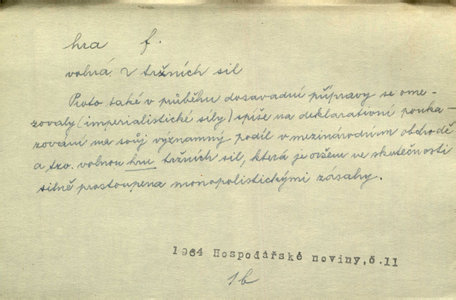 hra f.
volná ~ tržních sil
Proto také v průběhu dosavadní přípravy se ome-
zovaly (imperialistické síly) spíše na deklarativní pouka-
zování na svůj významný podíl v mezinárodním obchodě
a tzv. volnou hru tržních sil, která je ovšem ve skutečnosti
silně prostoupena monopolistickými zásahy.
1964 Hospodářské noviny,č.11
1b